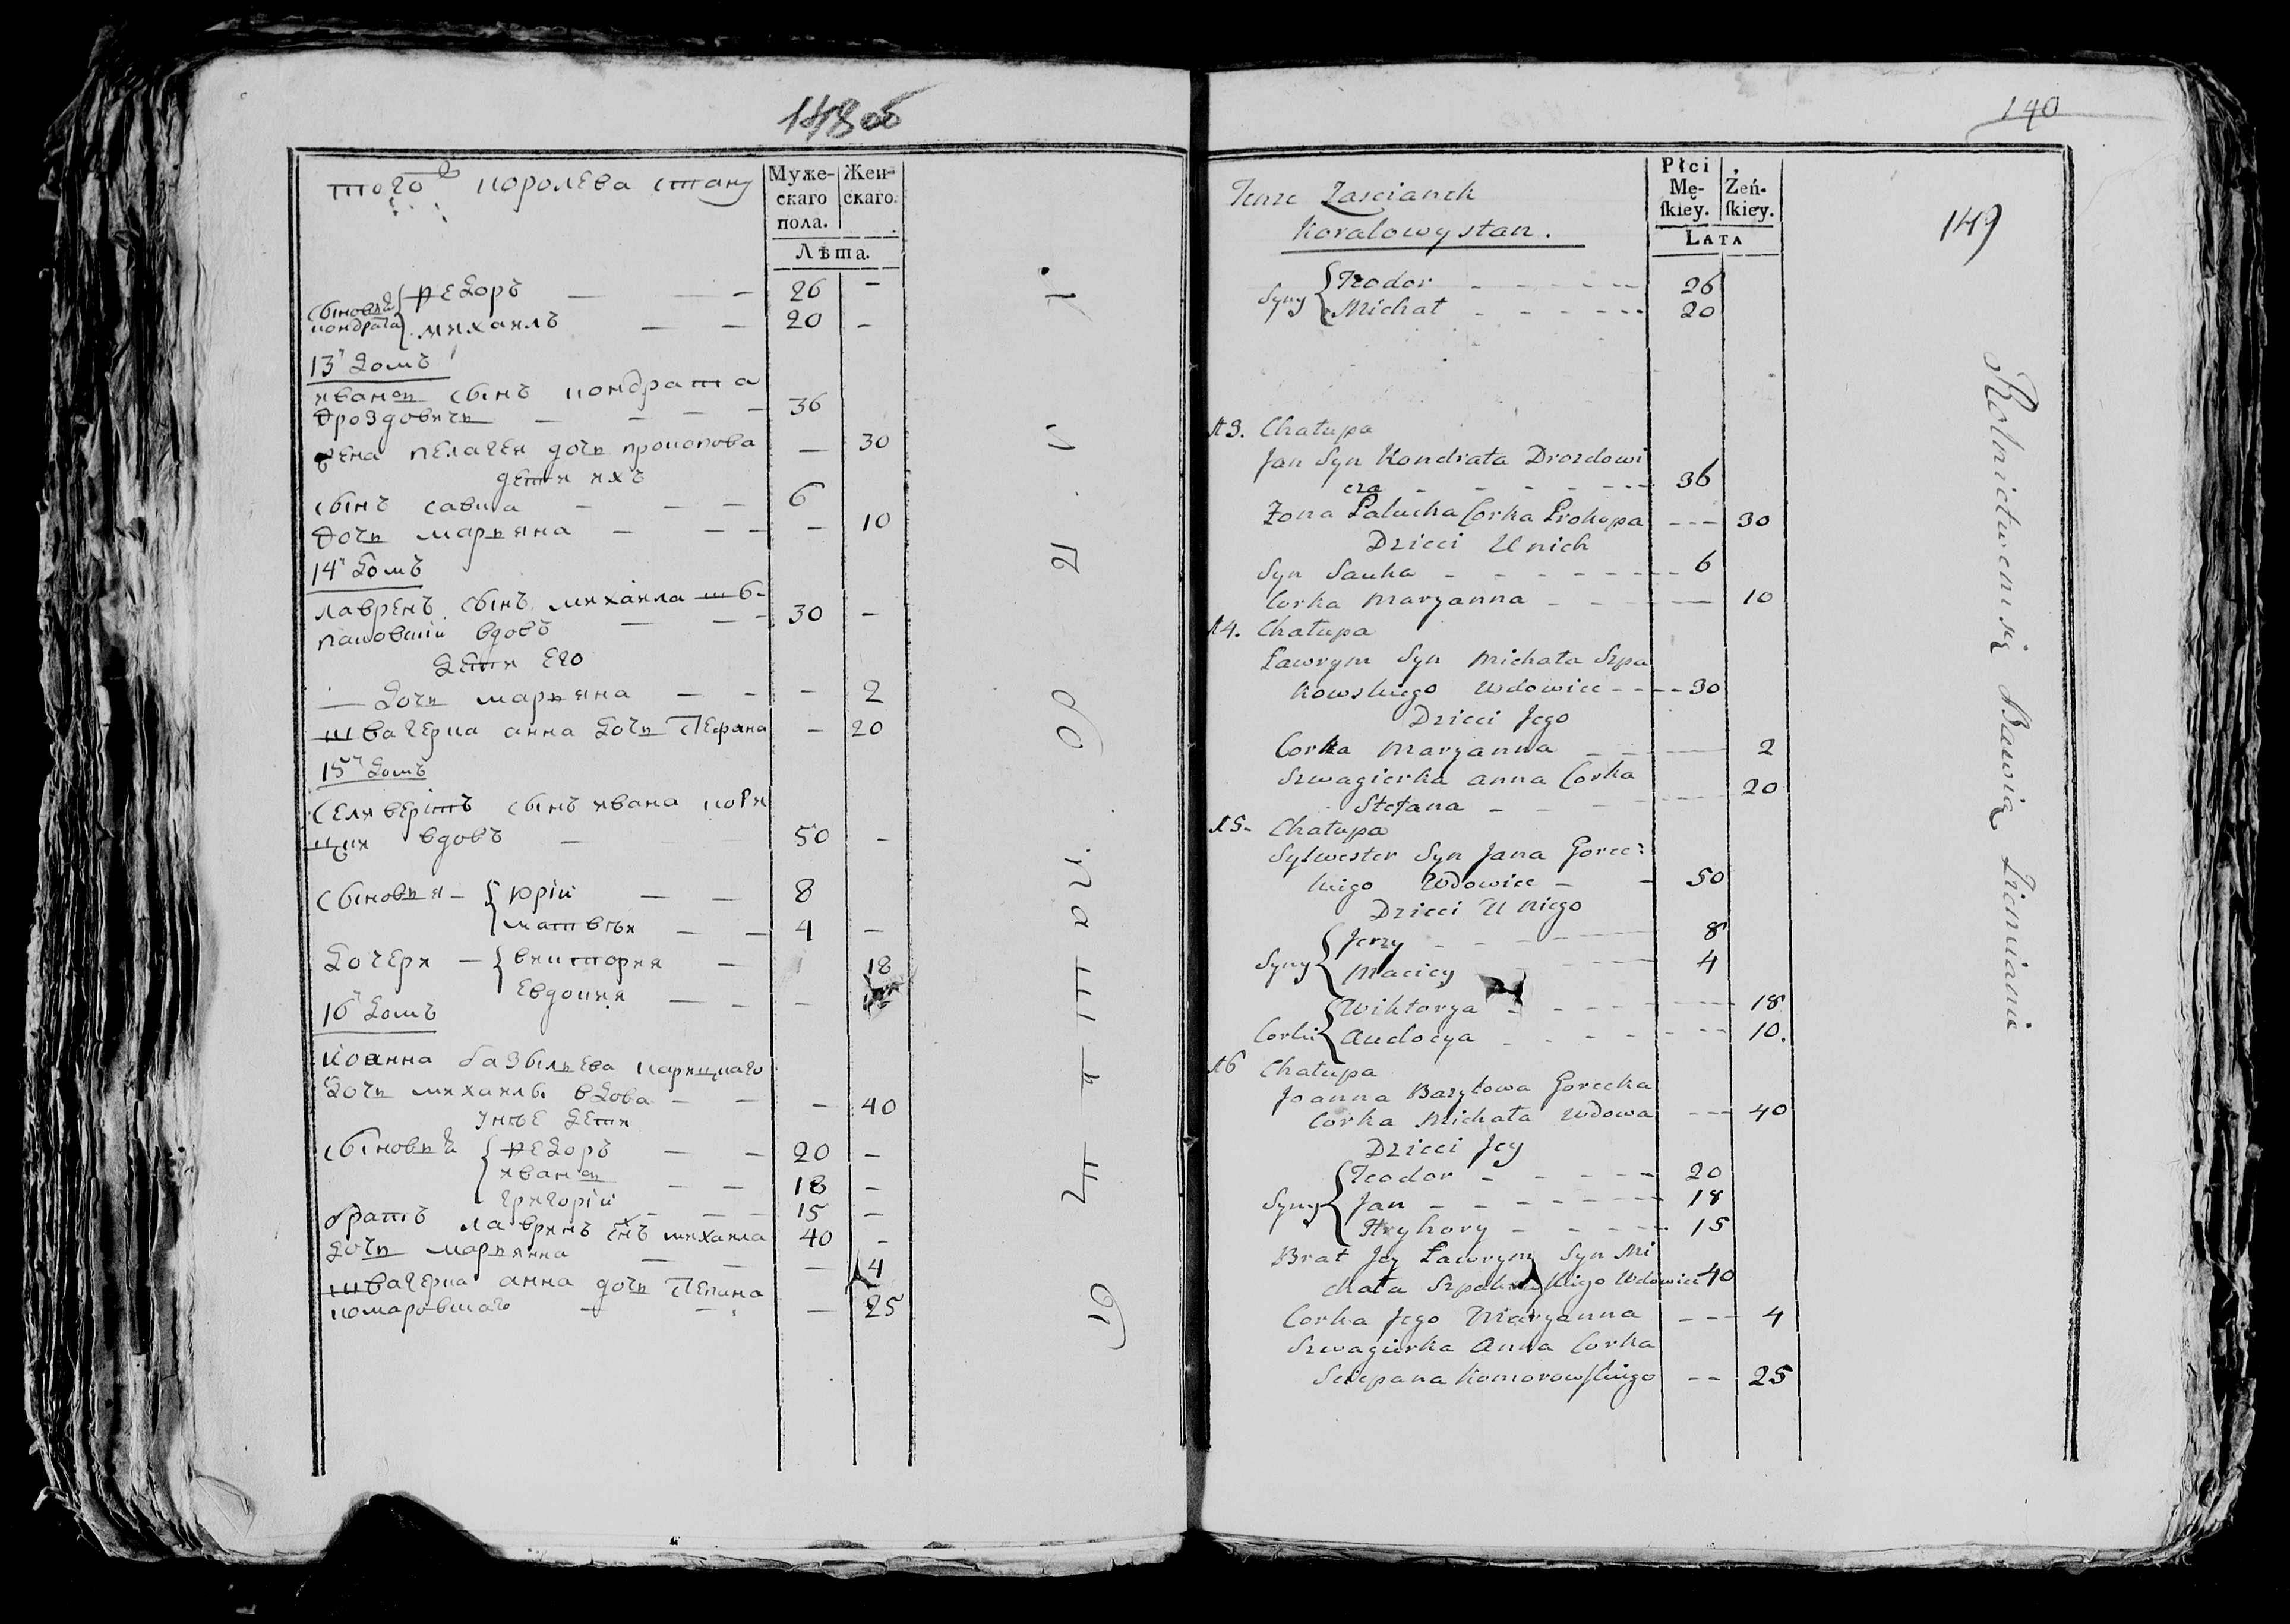 148 об
того Королева стану
Муже-
скаго
пола.
Жен-
скаго.
Лѣта.
сыновья
кондрата
Федоръ — — — 26 —
михаилъ — — 20 —
13й домъ
иванъ сынъ кондрата
дроздовичь — — — — 36
жена пелагея дочь прокопова — 30
дети ихъ
сынъ савка — — — 6
дочь марьяна — — — — 10
14й домъ
лавренъ сынъ михаила шб-
паковский вдовъ — — — 30 —
дети его
— дочь марьяна — — — 2
швагерка анна дочь стефана — 20
15й домъ
селиверстъ сынъ ивана
вдовъ — 50 —
сыновья — юрій — — 8
матвѣй — — 4 —
дочери — виктория — 18
евдокия — — —
16й домъ
иоанна базыльева
дочь михаилы вдова — — — 40
унее дети
сыновья федоръ — — 20 —
иванъ — — 18 —
григорій — — — 15 —
братъ лавринъ сынъ михаила 40 —
дочь марьянна — — — 4
швагерка анна дочь
комаровшаго — — — 25
140
149
Tenze Zascianek
Koralowystan.
Płci
Mę-
ſkiey.
Żeń-
ſkiey.
LATA
Syny Teodor - - - - - - 26
Michał - - - - - - 20
13. Chałupa
Jan Syn Kondrata Drozdowi
cza - - - - - - - 36
Zona Palucha Corka Prokopa --- 30
Dzieci U nich
Syn Sauka - - - - - - - 6
Corka Maryanna - - - — 10
14. Chałupa
Ławrym Syn Michała Szpa
kowskiego Wdowiec - - - - 30
Dzieci Jego
Corka Maryanna - - — 2
Szwagierka Anna Corka
Stefana - - - --- 20
15- Chałupa
Sylwester Syn Jana Gorec:
kiego Wdowiec - - 50
Dzieci U niego
Syny Jerzy - - - - — 8
Maciey - - - - - 4
Corki Wiktorya - - - - - --- 18
Audocya - - - - - --- 10.
16 Chałupa
Joanna Bazyłowa Gorecka
Corka Michała Wdowa --- 40
Dzieci Jey
Syny Teodor - - - - - 20
Jan - - - - - - - - 18
Hryhory - - - - - 15
Brat Jey Ławrym Syn Mi
chała Szpakowſkiego Wdowiec 40
Corka Jego Maryanna --- 4
Szwagierka Anna Corka
Sciepana Komorowſkiego -- 25
Rolnictwem się Bawią Ziemianie